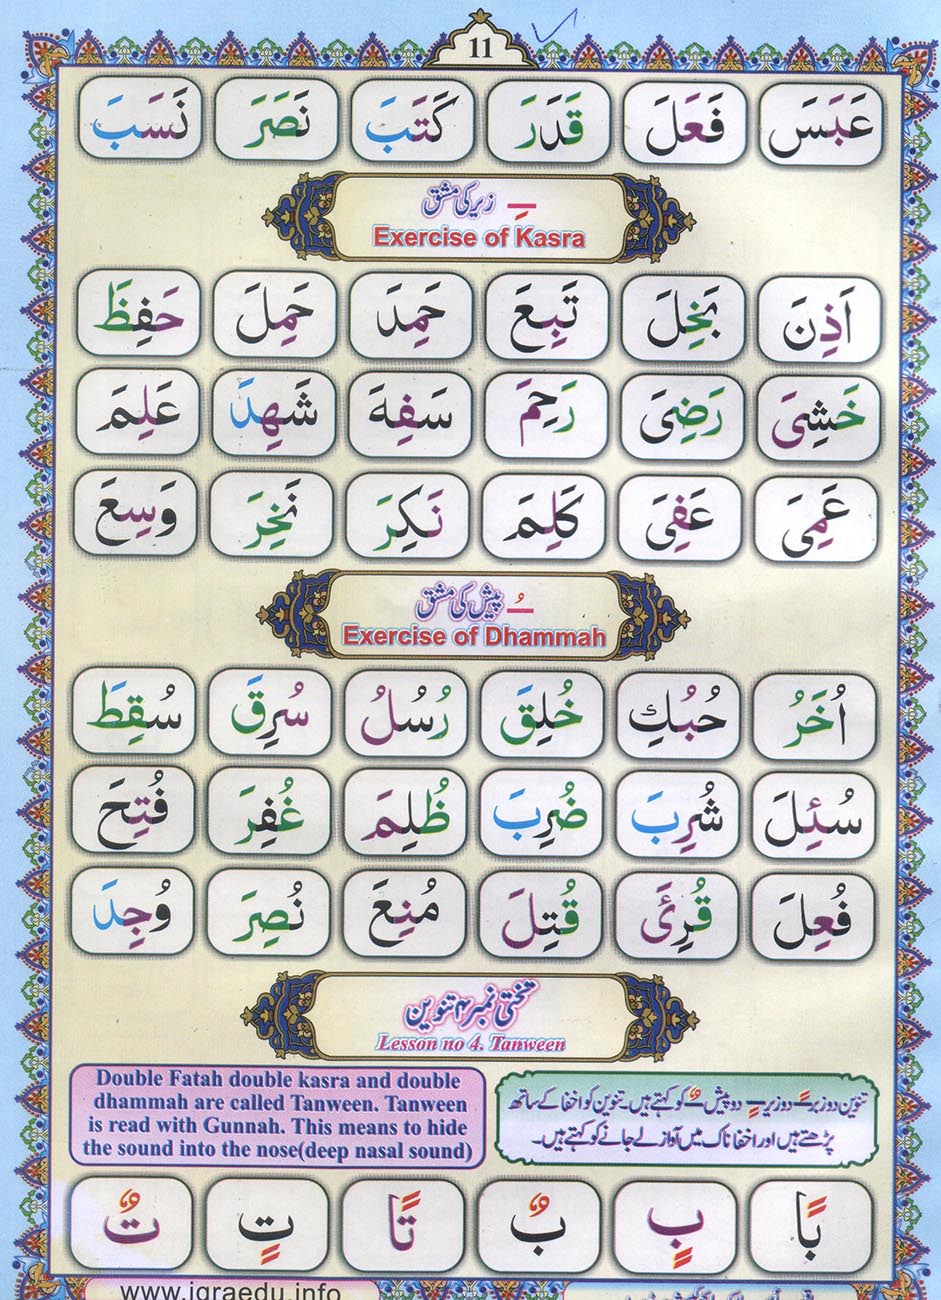 11
عَبَسَ فَعَلَ قَدَرَ كَتَبَ نَصَرَ نَسَبَ
ـِ زیر کی مشق
Exercise of Kasra
اَذِنَ بَخِلَ تَبِعَ حَمِدَ حَمِلَ حَفِظَ
خَشِیَ رَضِیَ رَحِمَ سَفِهَ شَهِدَ عَلِمَ
عَمِیَ عَفِیَ كَلِمَ نَكِرَ نَخِرَ وَسِعَ
ـُ پیش کی مشق
Exercise of Dhammah
اُخَرُ حُبُكِ خُلِقَ رُسُلُ سُرِقَ سُقِطَ
سُئِلَ شُرِبَ ضُرِبَ ظُلِمَ غُفِرَ فُتِحَ
فُعِلَ قُرِئَ قُتِلَ مُنِعَ نُصِرَ وُجِدَ
تختی نمبر ۴ تنوین
Lesson no 4. Tanween
تنوین دو زبر ـً دو زیر ـٍ دو پیش ـٌ کو کہتے ہیں۔ تنوین کو اخفا کے ساتھ
پڑھتے ہیں اور اخفا ناک میں آواز لے جانے کو کہتے ہیں۔
Double Fatah double kasra and double
dhammah are called Tanween. Tanween
is read with Gunnah. This means to hide
the sound into the nose(deep nasal sound)
بًا بٍ بٌ تًا تٍ تٌ
www.iqraedu.info